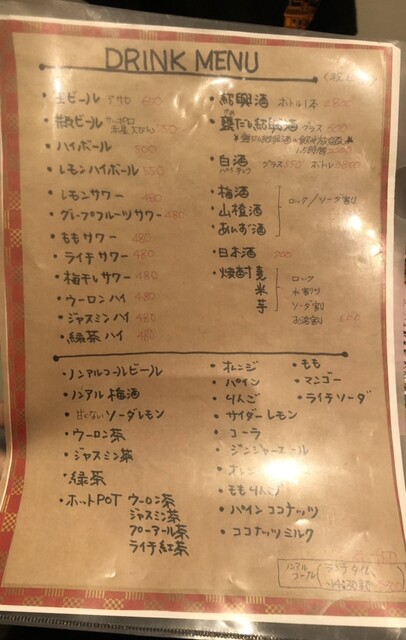 DRINK MENU
・生ビール 600
・瓶ビール
・ハイボール 500
・レモンハイボール 550
・レモンサワー 480
・グレープフルーツサワー 480
・ももサワー 480
・ライチサワー 480
・梅干しサワー 480
・ウーロンハイ 480
・ジャスミンハイ 480
・緑茶ハイ 480
・紹興酒 ボトル1本 2800
・甕だし紹興酒 グラス 600
・白酒 グラス550 ボトル3800
・梅酒
・山楂酒
・あんず酒
ロック/ソーダ割り
・日本酒 700
・焼酎 麦
米
芋
ロック
水割り
ソーダ割
お湯割 600
・ノンアルコールビール
・ノンアル梅酒
・甘くないソーダレモン
・ウーロン茶
・ジャスミン茶
・緑茶
・ホットPOT ウーロン茶
ジャスミン茶
プーアール茶
ライチ紅茶
・オレンジ
・パイン
・りんご
・サイダーレモン
・コーラ
・ジンジャーエール
・オレンジ
・ももりんご
・パインココナッツ
・ココナッツミルク
・もも
・マンゴー
・ライチソーダ